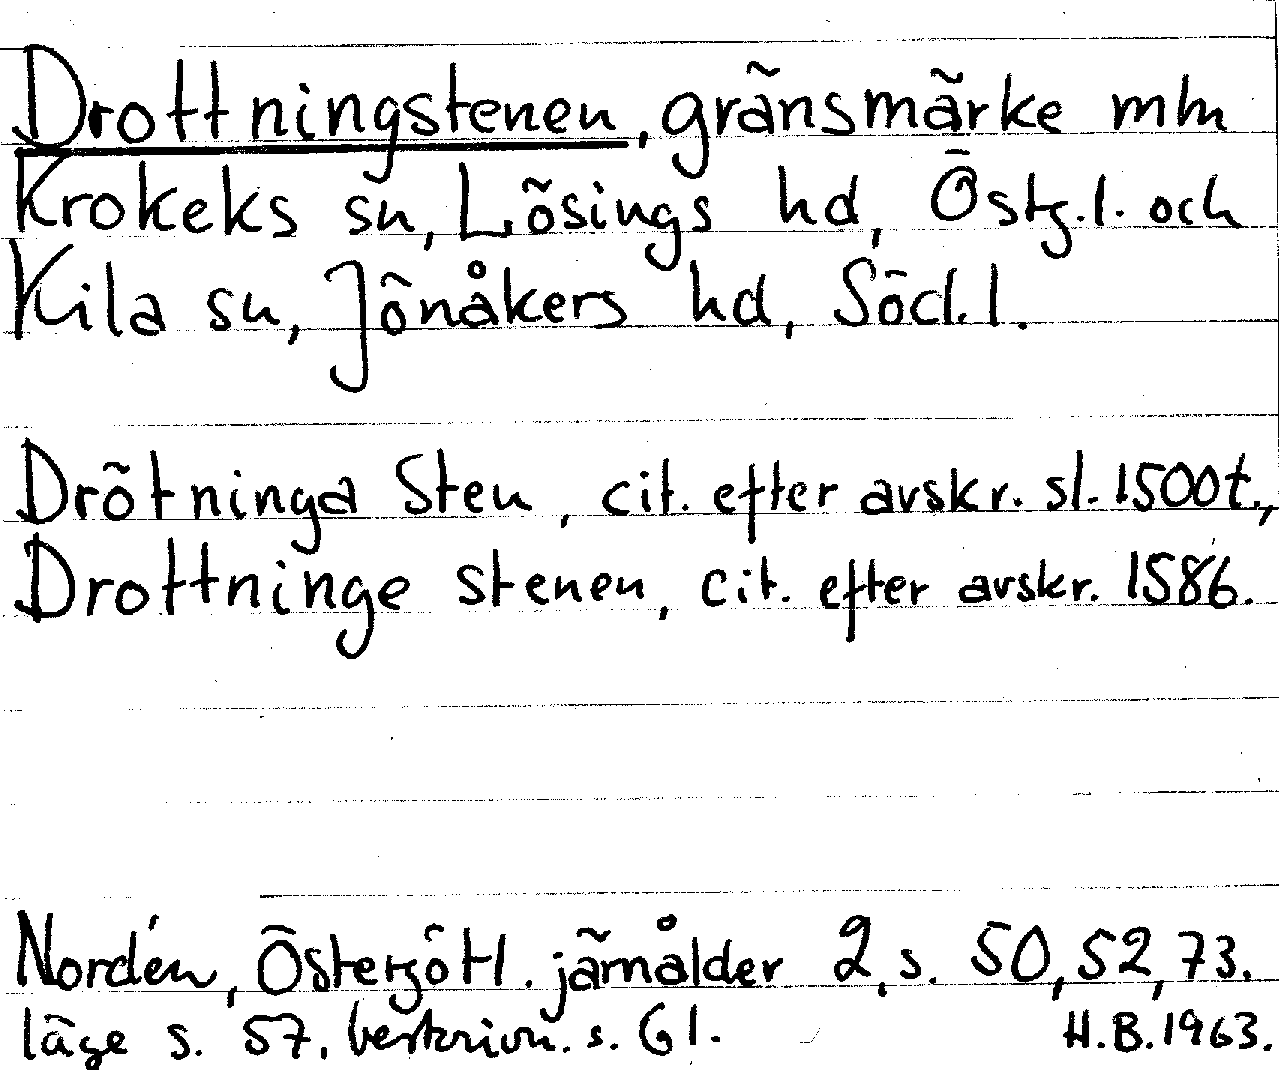 Drottningstenen, gränsmärke mln
Krokeks sn, Lösings hd, Östg.l. och
Kila sn, Jönåkers hd, Södl.l.
Drötninga Sten, cit. efter avskr. sl. 1500t.,
Drottninge stenen, cit. efter avskr. 1586.
Nordén, Östergötl. järnålder 2, s. 50, 52, 73.
läge s. 57. beskrivn. s. 61.
H.B. 1963.